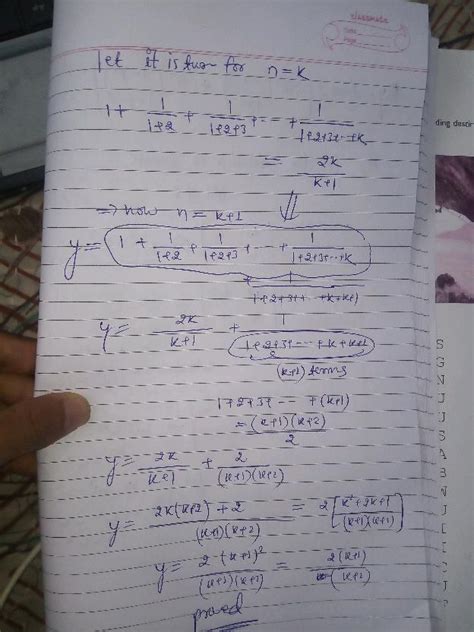 classmate
Date
Page
Let it is true for n=k
1 + 1/(1+2) + 1/(1+2+3) + ... + 1/(1+2+3+...+k)
= 2k/(k+1)
⇒ now n = k+1 ⇓
y = 1 + 1/(1+2) + 1/(1+2+3) + ... + 1/(1+2+3+...+k)
+ 1/(1+2+3+... +k+k+1)
y = 2k/(k+1) + 1/(1+2+3+...+k+k+1)
(k+1) terms
1+2+3+... +(k+1)
= (k+1)(k+2)/2
y = 2k/(k+1) + 2/((k+1)(k+2))
y = (2k(k+2)+2)/((k+1)(k+2)) = 2[(k²+2k+1)/((k+1)(k+2))]
y = 2(k+1)²/((k+1)(k+2)) = 2(k+1)/(k+2)
proved
ding destin
S
G
N
J
U
S
A
B
N
J